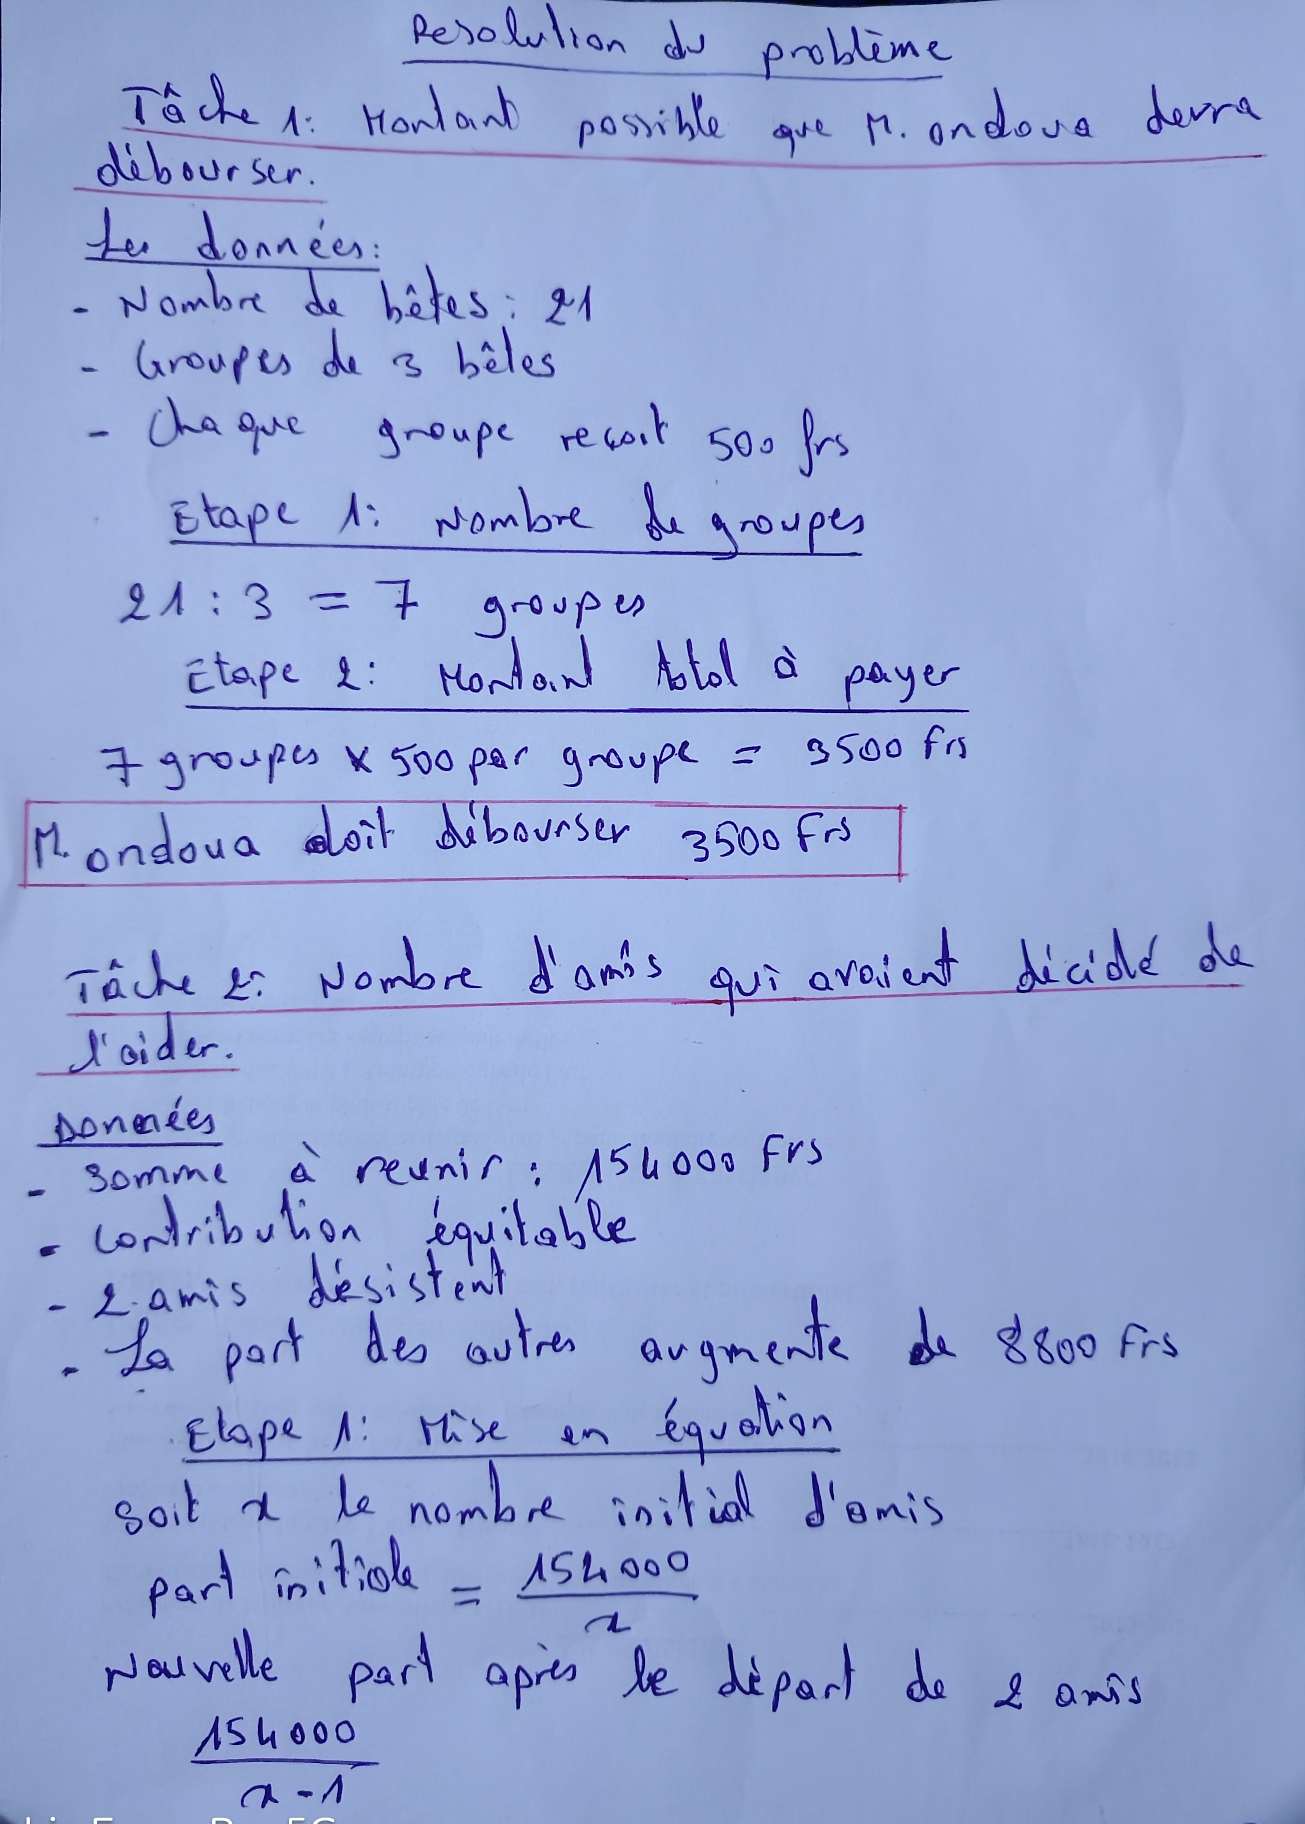 Resolution du problème
Tâche 1: Montant possible que M. ondoua devra
débourser.
Les données:
- Nombre de bêtes : 21
- Groupes de 3 bêtes
- Chaque groupe reçoit 500 frs
Etape 1: Nombre de groupes
21 : 3 = 7 groupes
Etape 2: Montant total à payer
7 groupes x 500 par groupe = 3500 Frs
M. ondoua doît débourser 3500 Frs
Tâche 2: Nombre d'amis qui avaient décidé de
l'aider.
Données
- Somme à reunir : 154000 Frs
- Contribution équitable
- 2 amis désistent
- La part des autres augmente de 8800 Frs
Etape 1: Mise en équation
Soit x le nombre initial d'amis
part initiale = 154000
x
Nouvelle part après le départ de 2 amis
154000
x - 1